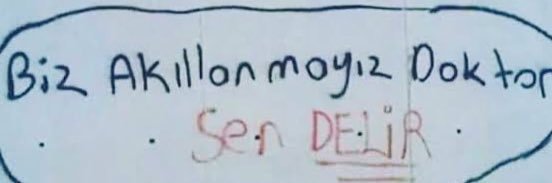 Biz Akıllanmayız Doktor
Sen DELiR